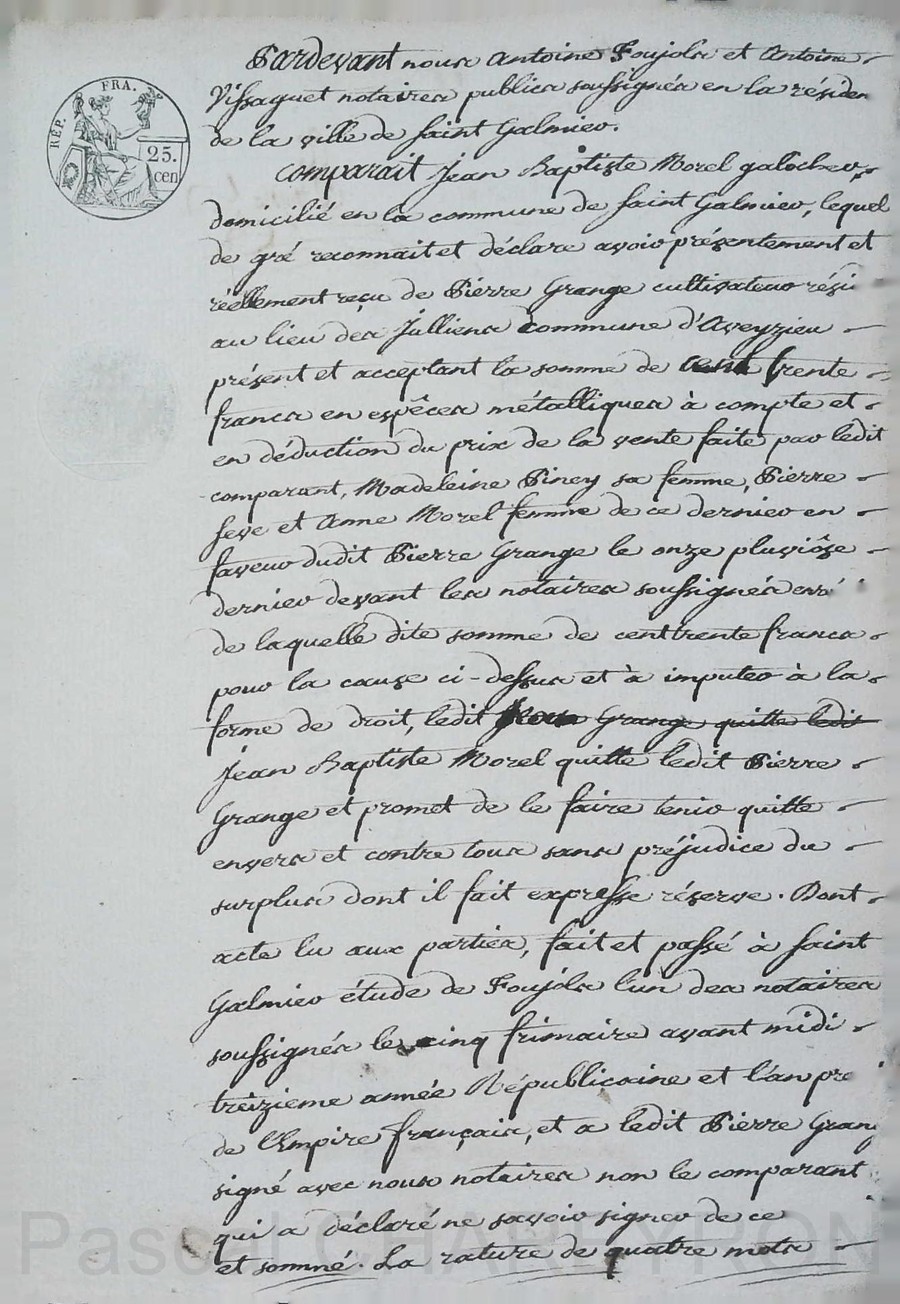 RÉP. FRA.
25.
cen
Pardevant nous Antoine Foujols et Antoine
Vissaguet notaires publics soussignés en la résiden
de la ville de Saint Galmier.
Comparait Jean Baptiste Morel galocher,
domicilié en la commune de Saint Galmier, lequel
de gré reconnait et déclare avoir présentement et
réellement reçu de Pierre Grange cultivateur rési
au lieu des Julliens commune d'Aveyzieu
présent et acceptant la somme de cent trente
francs en espêces métalliques à compte et
en déduction du prix de la vente faite par ledit
comparant, Madeleine Piney sa femme, Pierre
Seve et Anne Morel femme de ce dernier en
faveur dudit Pierre Grange le onze pluviôse
dernier devant les notaires soussignés
de laquelle dite somme de cent trente francs
pour la cause ci-dessus et à imputer à la
forme de droit, ledit Grange quitte ledit
Jean Baptiste Morel quitte ledit Pierre
Grange et promet de le faire tenir quitte
envers et contre tous sans préjudice du
surplus dont il fait expresse réserve. Dont
acte lu aux parties, fait et passé à Saint
Galmier étude de Foujols l'un des notaires
soussignés le cinq frimaire avant midi
treizieme année Républicaine et l'an pre
de l'Empire français, et a ledit Pierre Grang
signé avec nous notaires non le comparant
qui a déclaré ne savoir signer de ce
et sommé. La rature de quatre mots
Pascal CHAREYRON